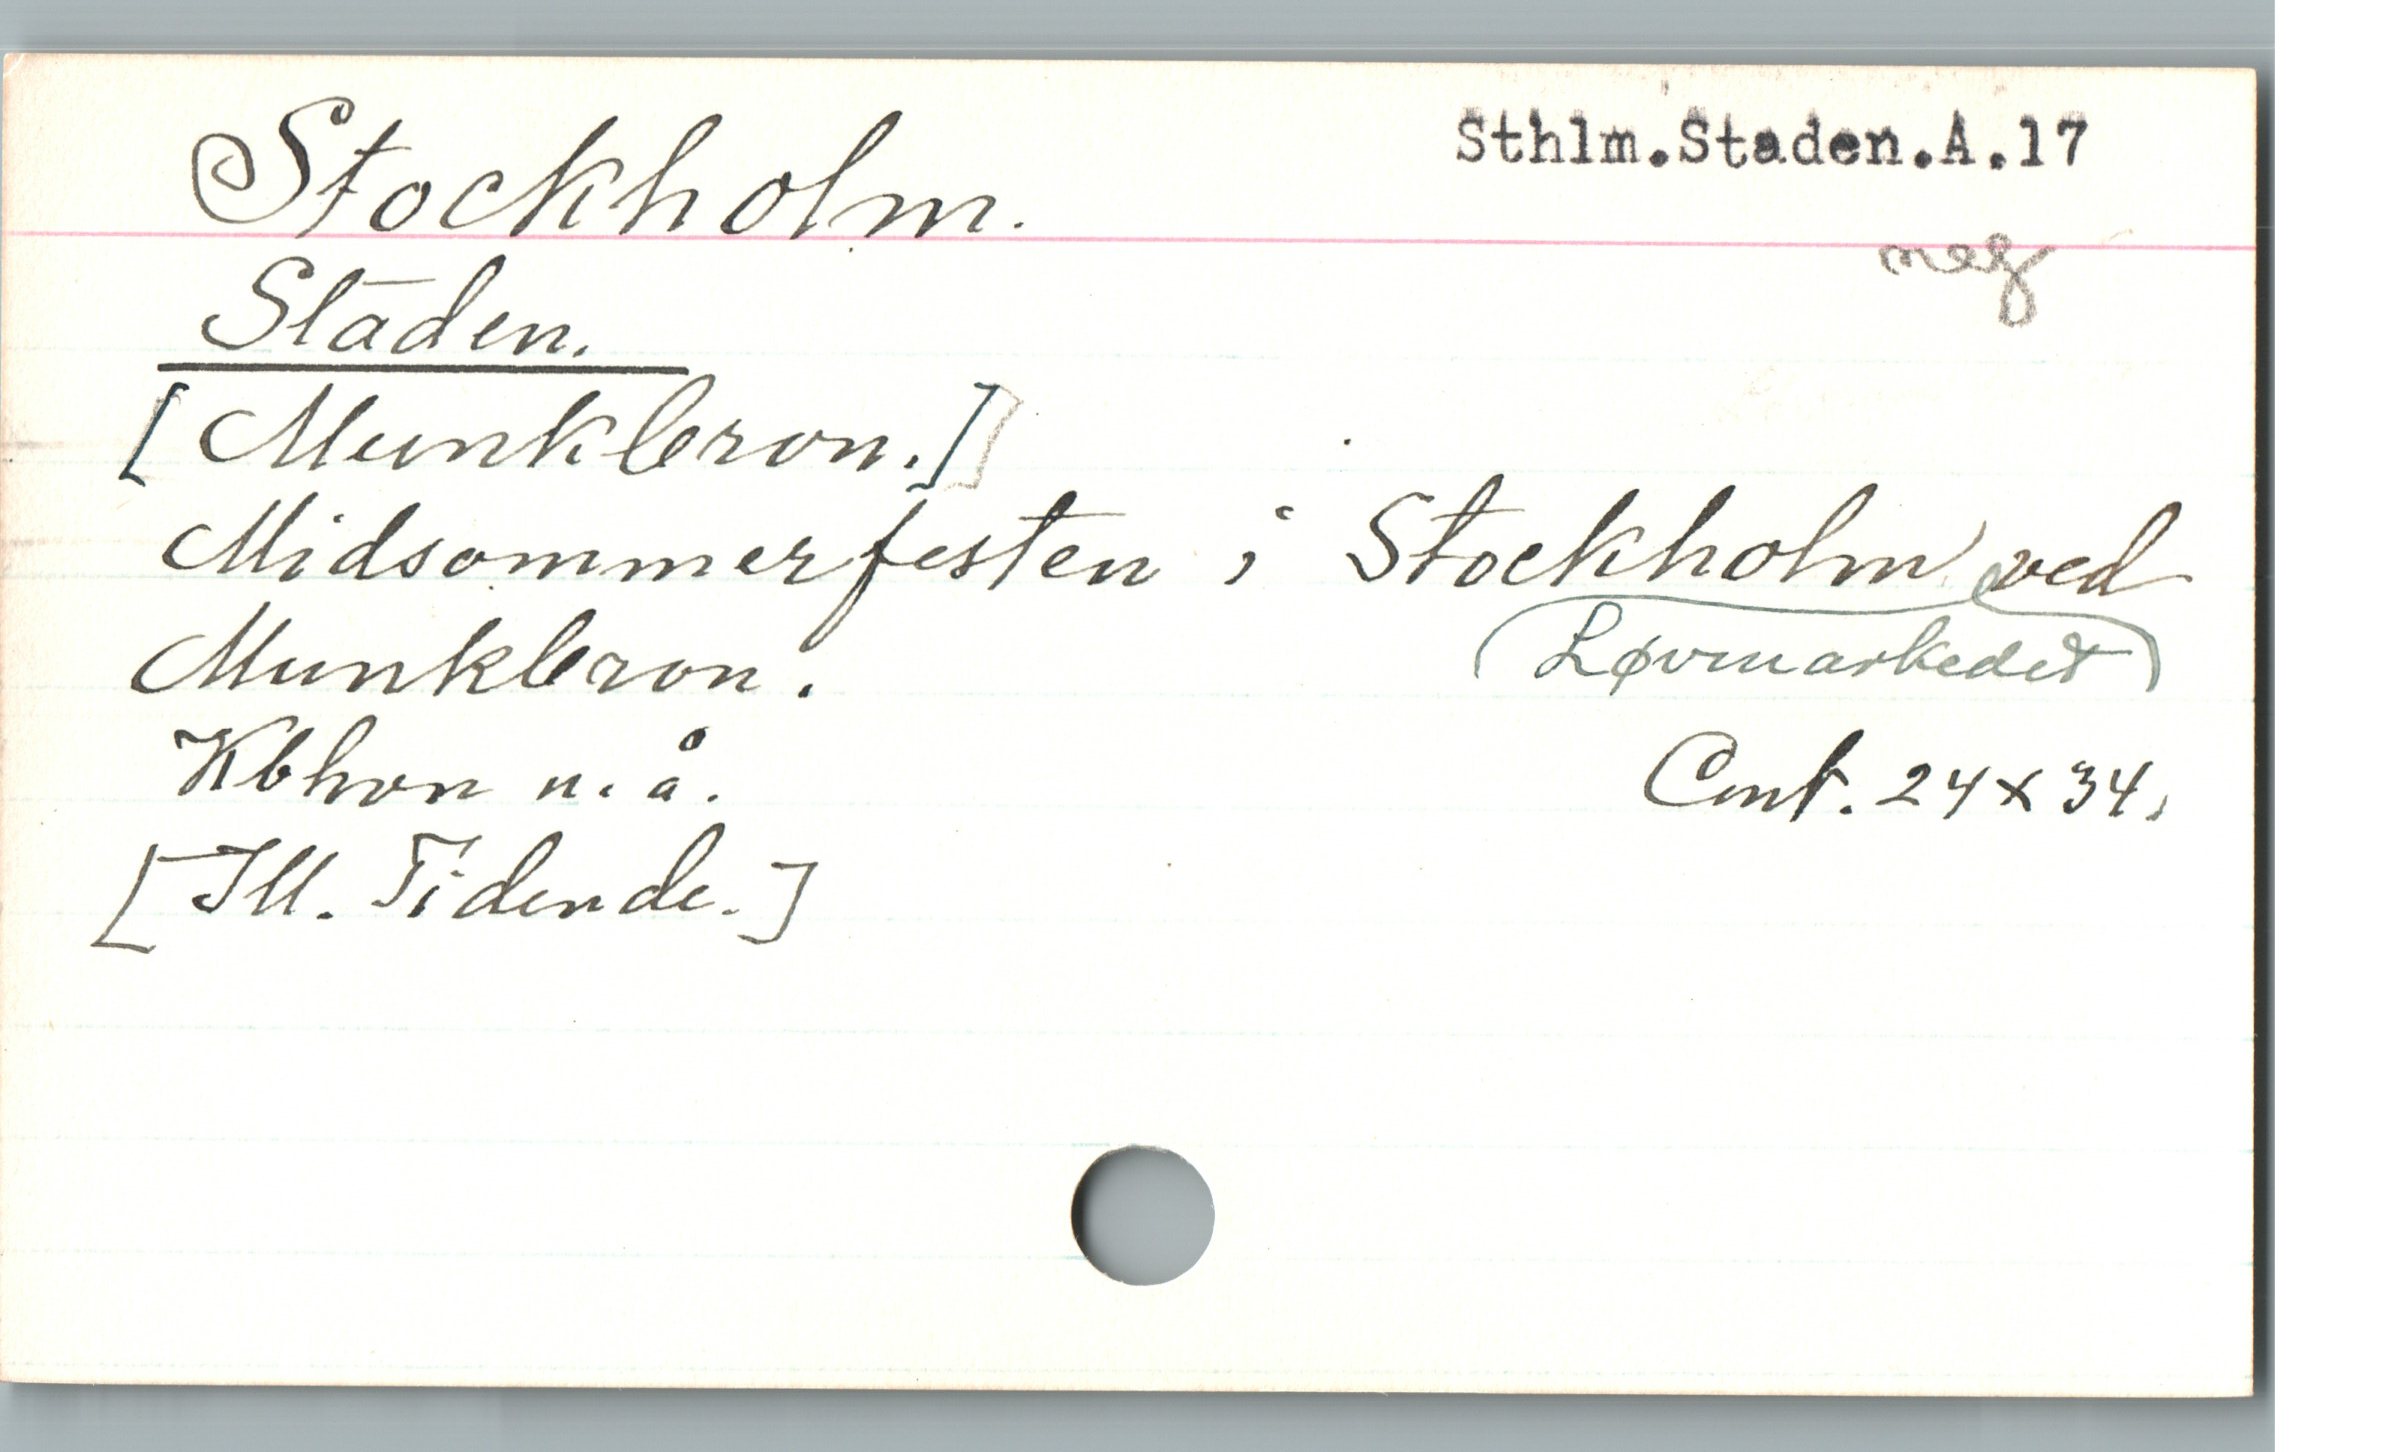 Stockholm.
Sthlm.Staden.A.17
neg
Staden.
[Munkbron.]]
Midsommerfesten i Stockholm ved
(Løvmarkedet)
Munkbron.
Kbhvn u. å.
Cmt. 24 x 34.
[Ill. Tidende.]